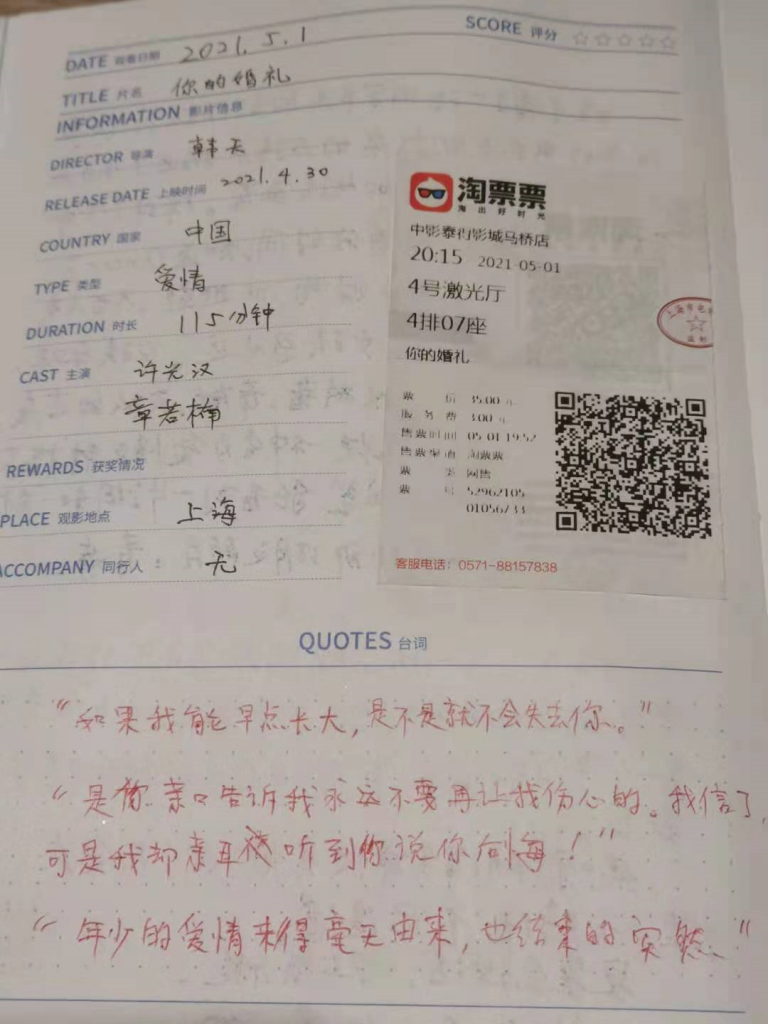 DATE 观看日期 2021.5.1
SCORE 评分
TITLE 片名 你的婚礼
INFORMATION 影片信息
DIRECTOR 导演 韩天
RELEASE DATE 上映时间 2021.4.30
COUNTRY 国家 中国
TYPE 类型 爱情
DURATION 时长 115分钟
CAST 主演 许光汉
章若楠
REWARDS 获奖情况
PLACE 观影地点 上海
ACCOMPANY 同行人 无
淘票票
淘出好时光
中影泰得影城马桥店
20:15 2021-05-01
4号激光厅
4排07座
你的婚礼
票价 35.00元
服务费 3.00元
售票时间 05-01 19:52
售票渠道 淘票票
票类 网售
票号 52962105
01056733
客服电话：0571-88157838
QUOTES 台词
“如果我能早点长大，是不是就不会失去你。”
“是你亲口告诉我永远不要再让我伤心的。我信了，
可是我却亲耳听到你说你后悔！”
“年少的爱情来得毫无由来，也结束的突然。”